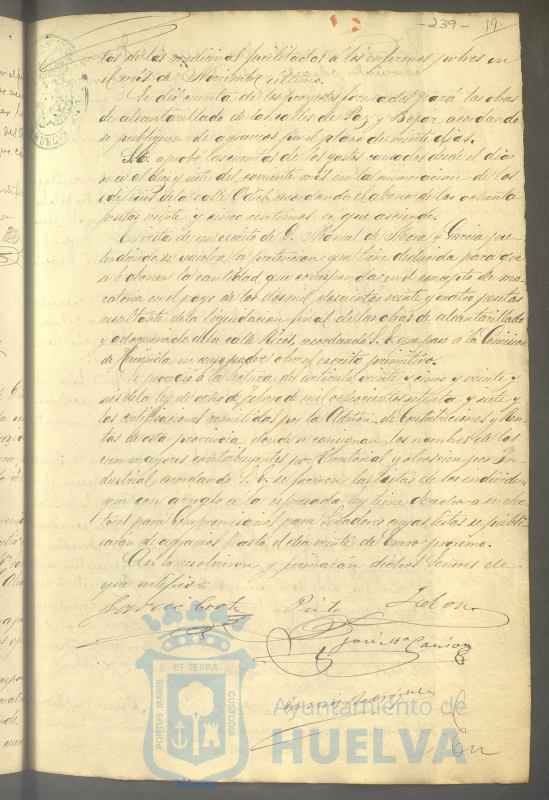 -239- 19
tas de las medicinas facilitadas á los enfermos pobres en
el mes de Noviembre último.
Se dió cuenta de los proyectos formados para las obras
de alcantarillado de las calles de Paz y Bejar acordando
se publiquen de agravios por el plazo de veinte dias.
S. E. aprobó las cuentas de los gastos causados desde el dia
al diez y siete del corriente mes en la numeracion de los
edificios de la calle Odiel acordando el abono de las ochenta
pesetas veinte y cinco centimos á que asciende.
En vista de un escrito de D. Manuel de Mora y Garcia pre
tendiendo se resuelva la pretencion que tiene deducida para que
se le abonen la cantidad que corresponda en el concepto de mo
ratoria en el pago de los dos mil doscientas veinte y cuatro pesetas
resultante de la liquidacion final de las obras de alcantarillado
y adoquinado de la calle Ricos, acordando S. E. que pase á la Comision
de Hacienda en cuyo poder obra el escrito primitivo.
Se procedió á la lectura del articulo veinte y cinco y veinte y
seis de la ley de ocho de febrero de mil ochocientos setenta y siete y
las certificaciones remitidas por la Admon. de Contribuciones y Ren
tas de esta provincia donde se consignan los nombres de los
cien mayores contribuyentes por Territorial y otros cien por In
dustrial, acordando S. E. se formen las listas de los individuos
que con arreglo á la espresada ley tiene derecho á se elec
toral para Compromisarios para Senadores cuyas listas se publi
carán de agravios hasta el dia veinte de Enero procsimo.
Asi lo resolvieron y firmaran dichos Señores de
que certifico =
Garcia Pinto
José Ma
ET TERRÆ
PORTUS MARIS
CUSTODIA
Ayuntamiento de
HUELVA